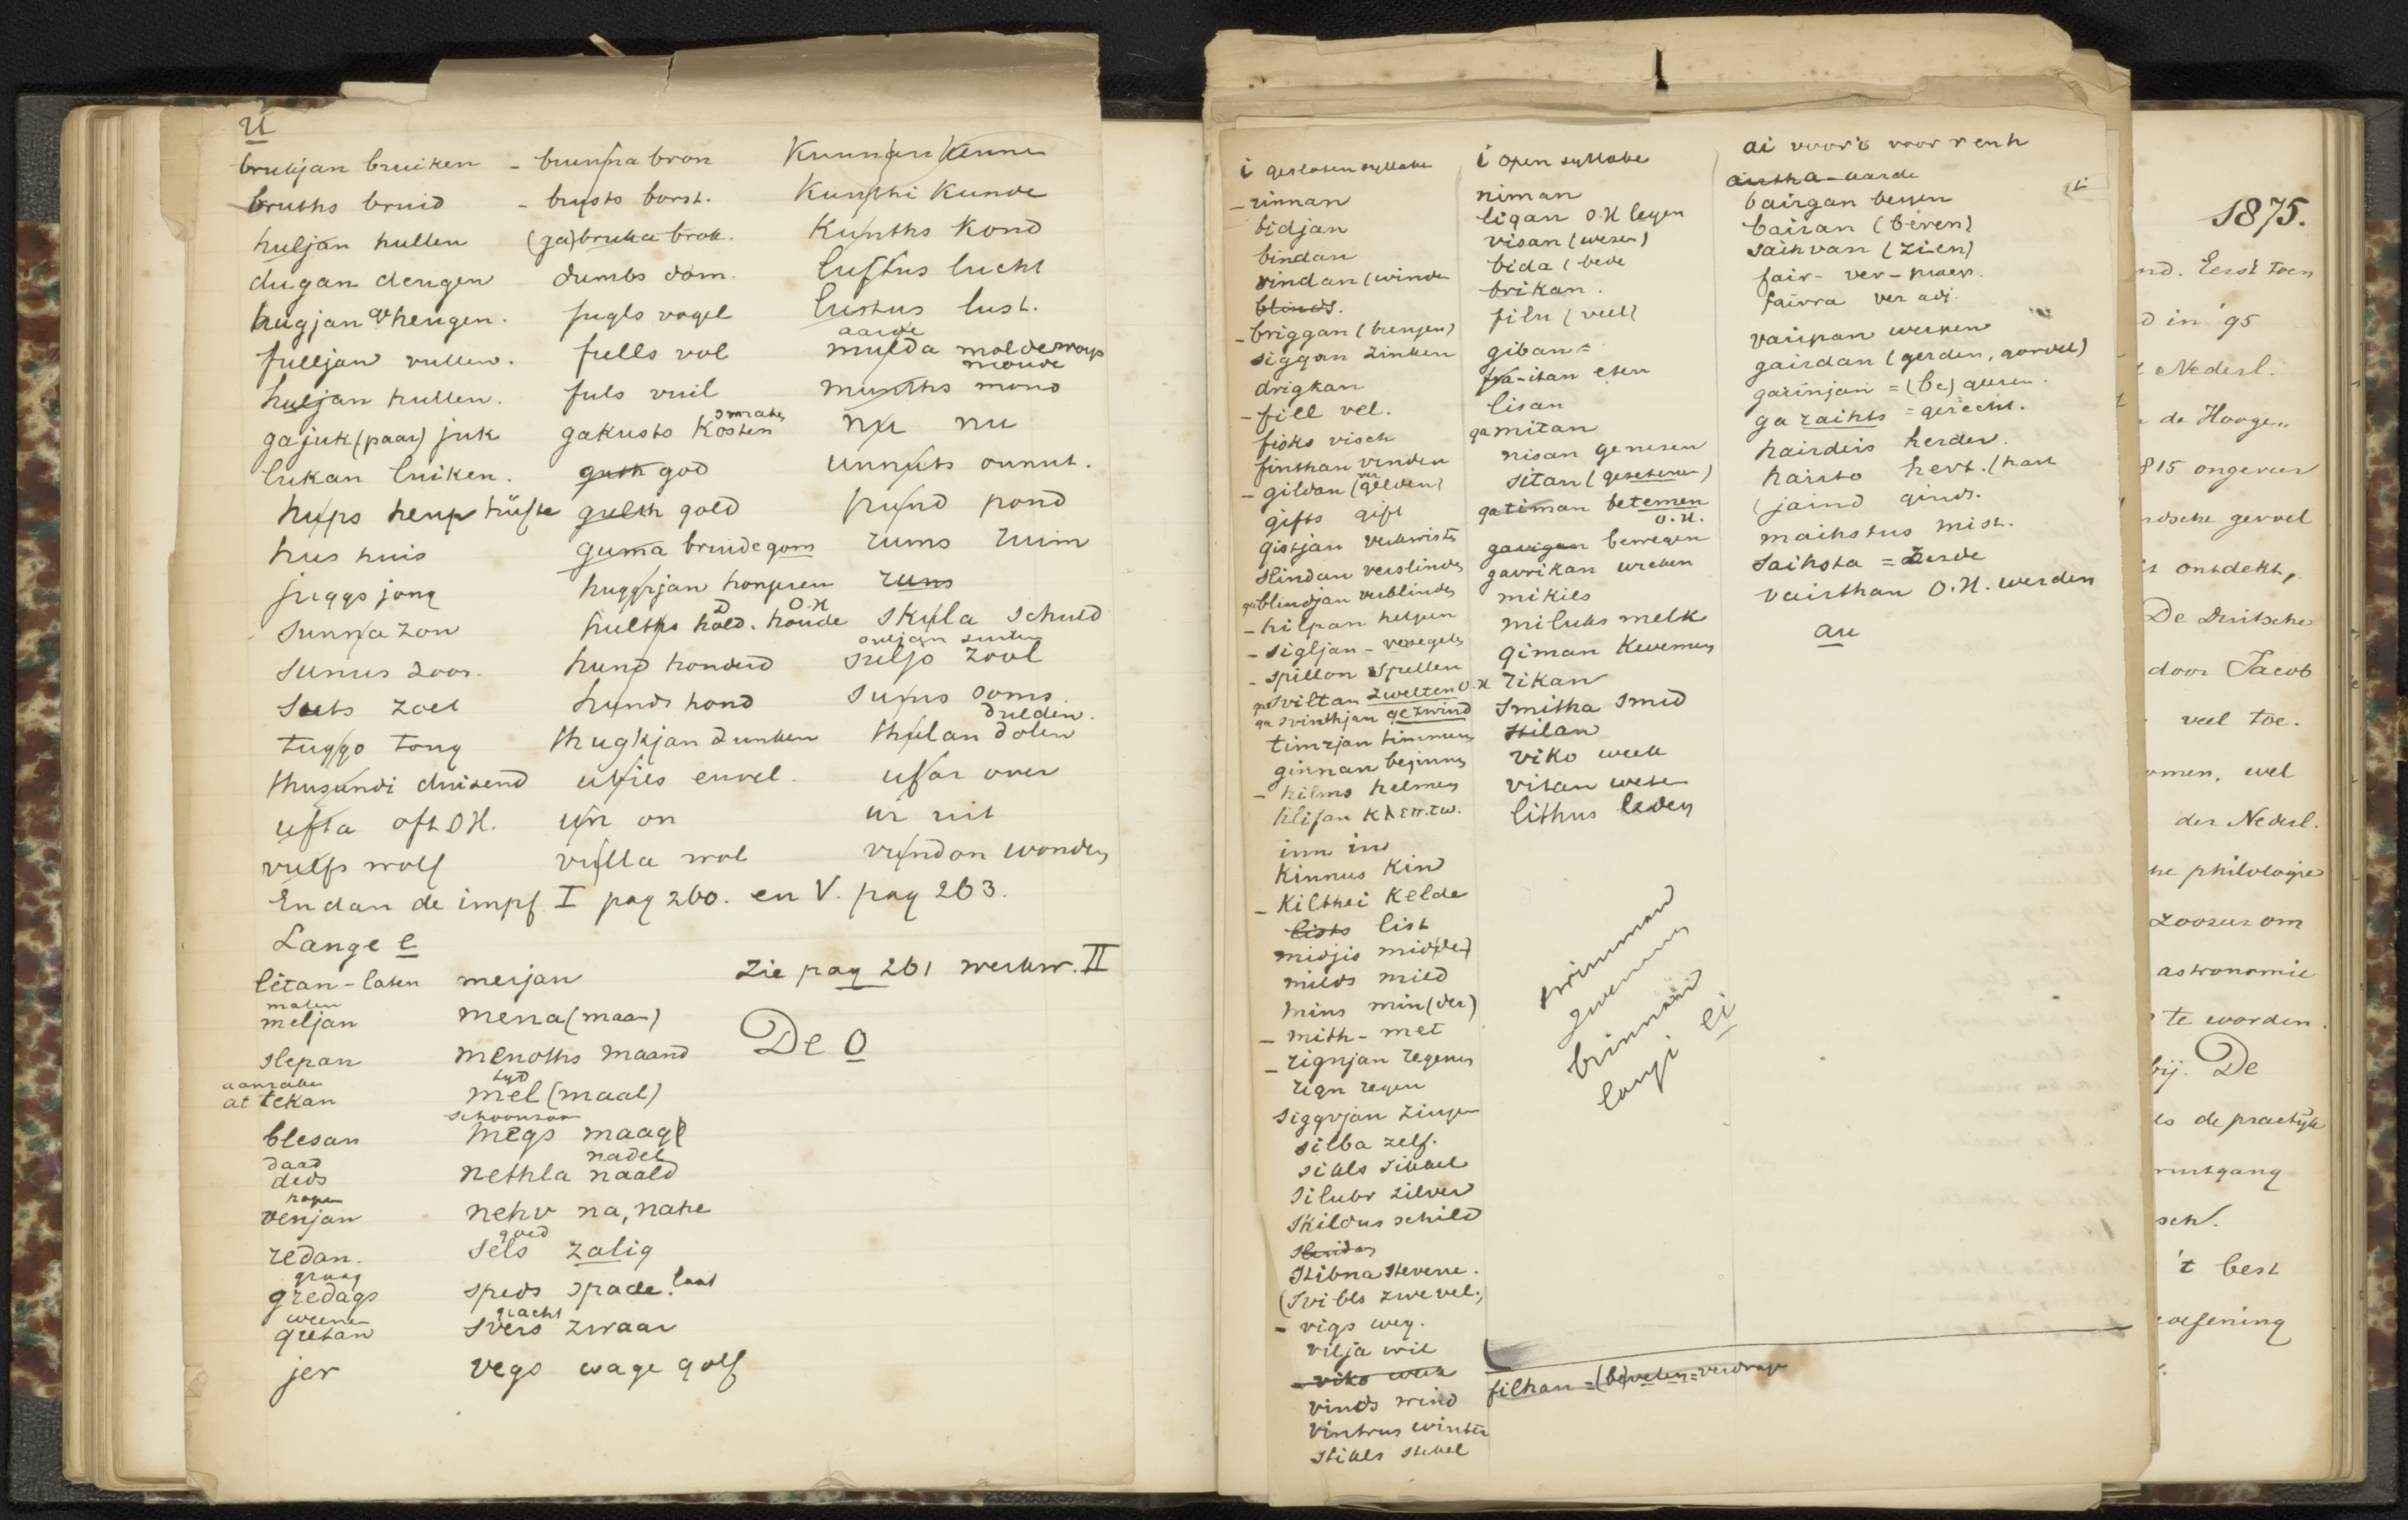 u
brukjan bruiken
bruths bruid
huljan hullen
dugan deugen
hugjan geheugen.
fulljan vullen.
huljan hullen.
gajuk (paar) juk
lukan luiken.
hups heup hüfte
hus huis
juggs jong
sunna zon
sunus zoon.
suts zoet
tuggo tong
thusundi duisend
ufta oft O.H.
vulfs wolf
- brunna bron
- brusts borst.
(ga)bruka brok.
dumbs dom.
fugls vogel
fulls vol
fuls vuil
gakusts kosten
guth god
gulth gold
guma bruidegom
huggrjan hongeren
hulths hold. houde
O.H
hund honderd
hunds hond
thugkjan dunken
ubils euvel.
un on
vulla wol
Kunnan Kenne
Kunthi Kunde
Kunths Kond
luftus lucht
lustus lust.
aarde
mulda molde
munths mond
nu nu
unnuts onnut.
pund pond
rums ruim
runs
skula schuld
suljo zool
sums soms
dulden.
thulan dolen
ufar over
ur uit
vundon wonden
En dan de impf I pag 260. en V. pag 263.
Lange e
lètan - laten
malen
meljan
slepan
at tekan
blesan
daad
deds
hopen
venjan
redan.
graag
gredags
weenen
gretan
jer
merjan
mena (maan)
menoths maand
tyd
mel (maal)
schoonzoon
megs maag
nadel
nethla naald
nehv na, nahe
goed
sels zalig
speds spade. laat
geacht
svers zwaar
vegs wage golf
Zie pag 261 werkw. II
De o
i gesloten syllabe
- rinnan
bidjan
bindan
vindan (winde
blinds.
- briggan (brengen)
siggan zinken
drigkan
- fill vel.
fisks visch
finthan vinden
- gildan (gelden)
gifts gift
gistjan
slindan verslinden
gablindjan verblinden
- hilpan helpen
- sigljan - verzegelen
- spillon spellen
gasviltan zwelten O.H
ga svinthjan gezwind
timrjan timmeren
ginnan beginnen
- hilms helmen
hlifan
inn in
Kinnus Kin
- Kilthei Kelde
lists list
midjis mid(den)
milds mild
mins min(der)
- mith - met
- rignjan regenen
rign regen
siggvjan zingen
silba zelf.
sikls sikkel
silubr zilver
skildus schild
slindan
stibna stevene.
(svibls zwevel.)
- vigs weg.
vilja wil
- viko week
vinds wind
vintrus winter
stikls stekel
i open syllabe
niman
ligan O.H legen
visan (wesen)
bida (bede
brikan.
filu (veel)
giban =
fra-itan eten
lisan
gamitan
nisan genesen
sitan (gesetenen)
gatiman betemen
O.H.
gavigan bewegen
gavrikan wreken
mikils
miluks melk
qiman Kwemen
rikan
smitha smid
stilan
viko week
vitan wete
lithus leden
swimman
brinnan
lange i ei
filhan = (be)velen = verdrage
ai voor i voor r en h
airtha - aarde
bairgan bergen
bairan (beren)
saihvan (zien)
fair - ver -
fairra ver adj.
vairpan werpen
gairdan (gerden, gordel)
gairnjan = (be)geren.
ga raihts = gerecht.
hairdeis herder.
hairto hert. (hart
(jaind ginds.
maihstus mist.
saihsta = zesde
vairthan O.H. werden
au
1875.
nd. Eerst toen
d in '95
Nederl.
de Hooge,,
815 ongeveer
dsche gevoel
is ontdekt,
De Duitsche
door Jacob
veel toe.
omen, wel
der Nederl.
he philologie
zoozeer om
astronomie
te worden.
bij. De
es de practijk
ruitgang
sch.
't best
oefening